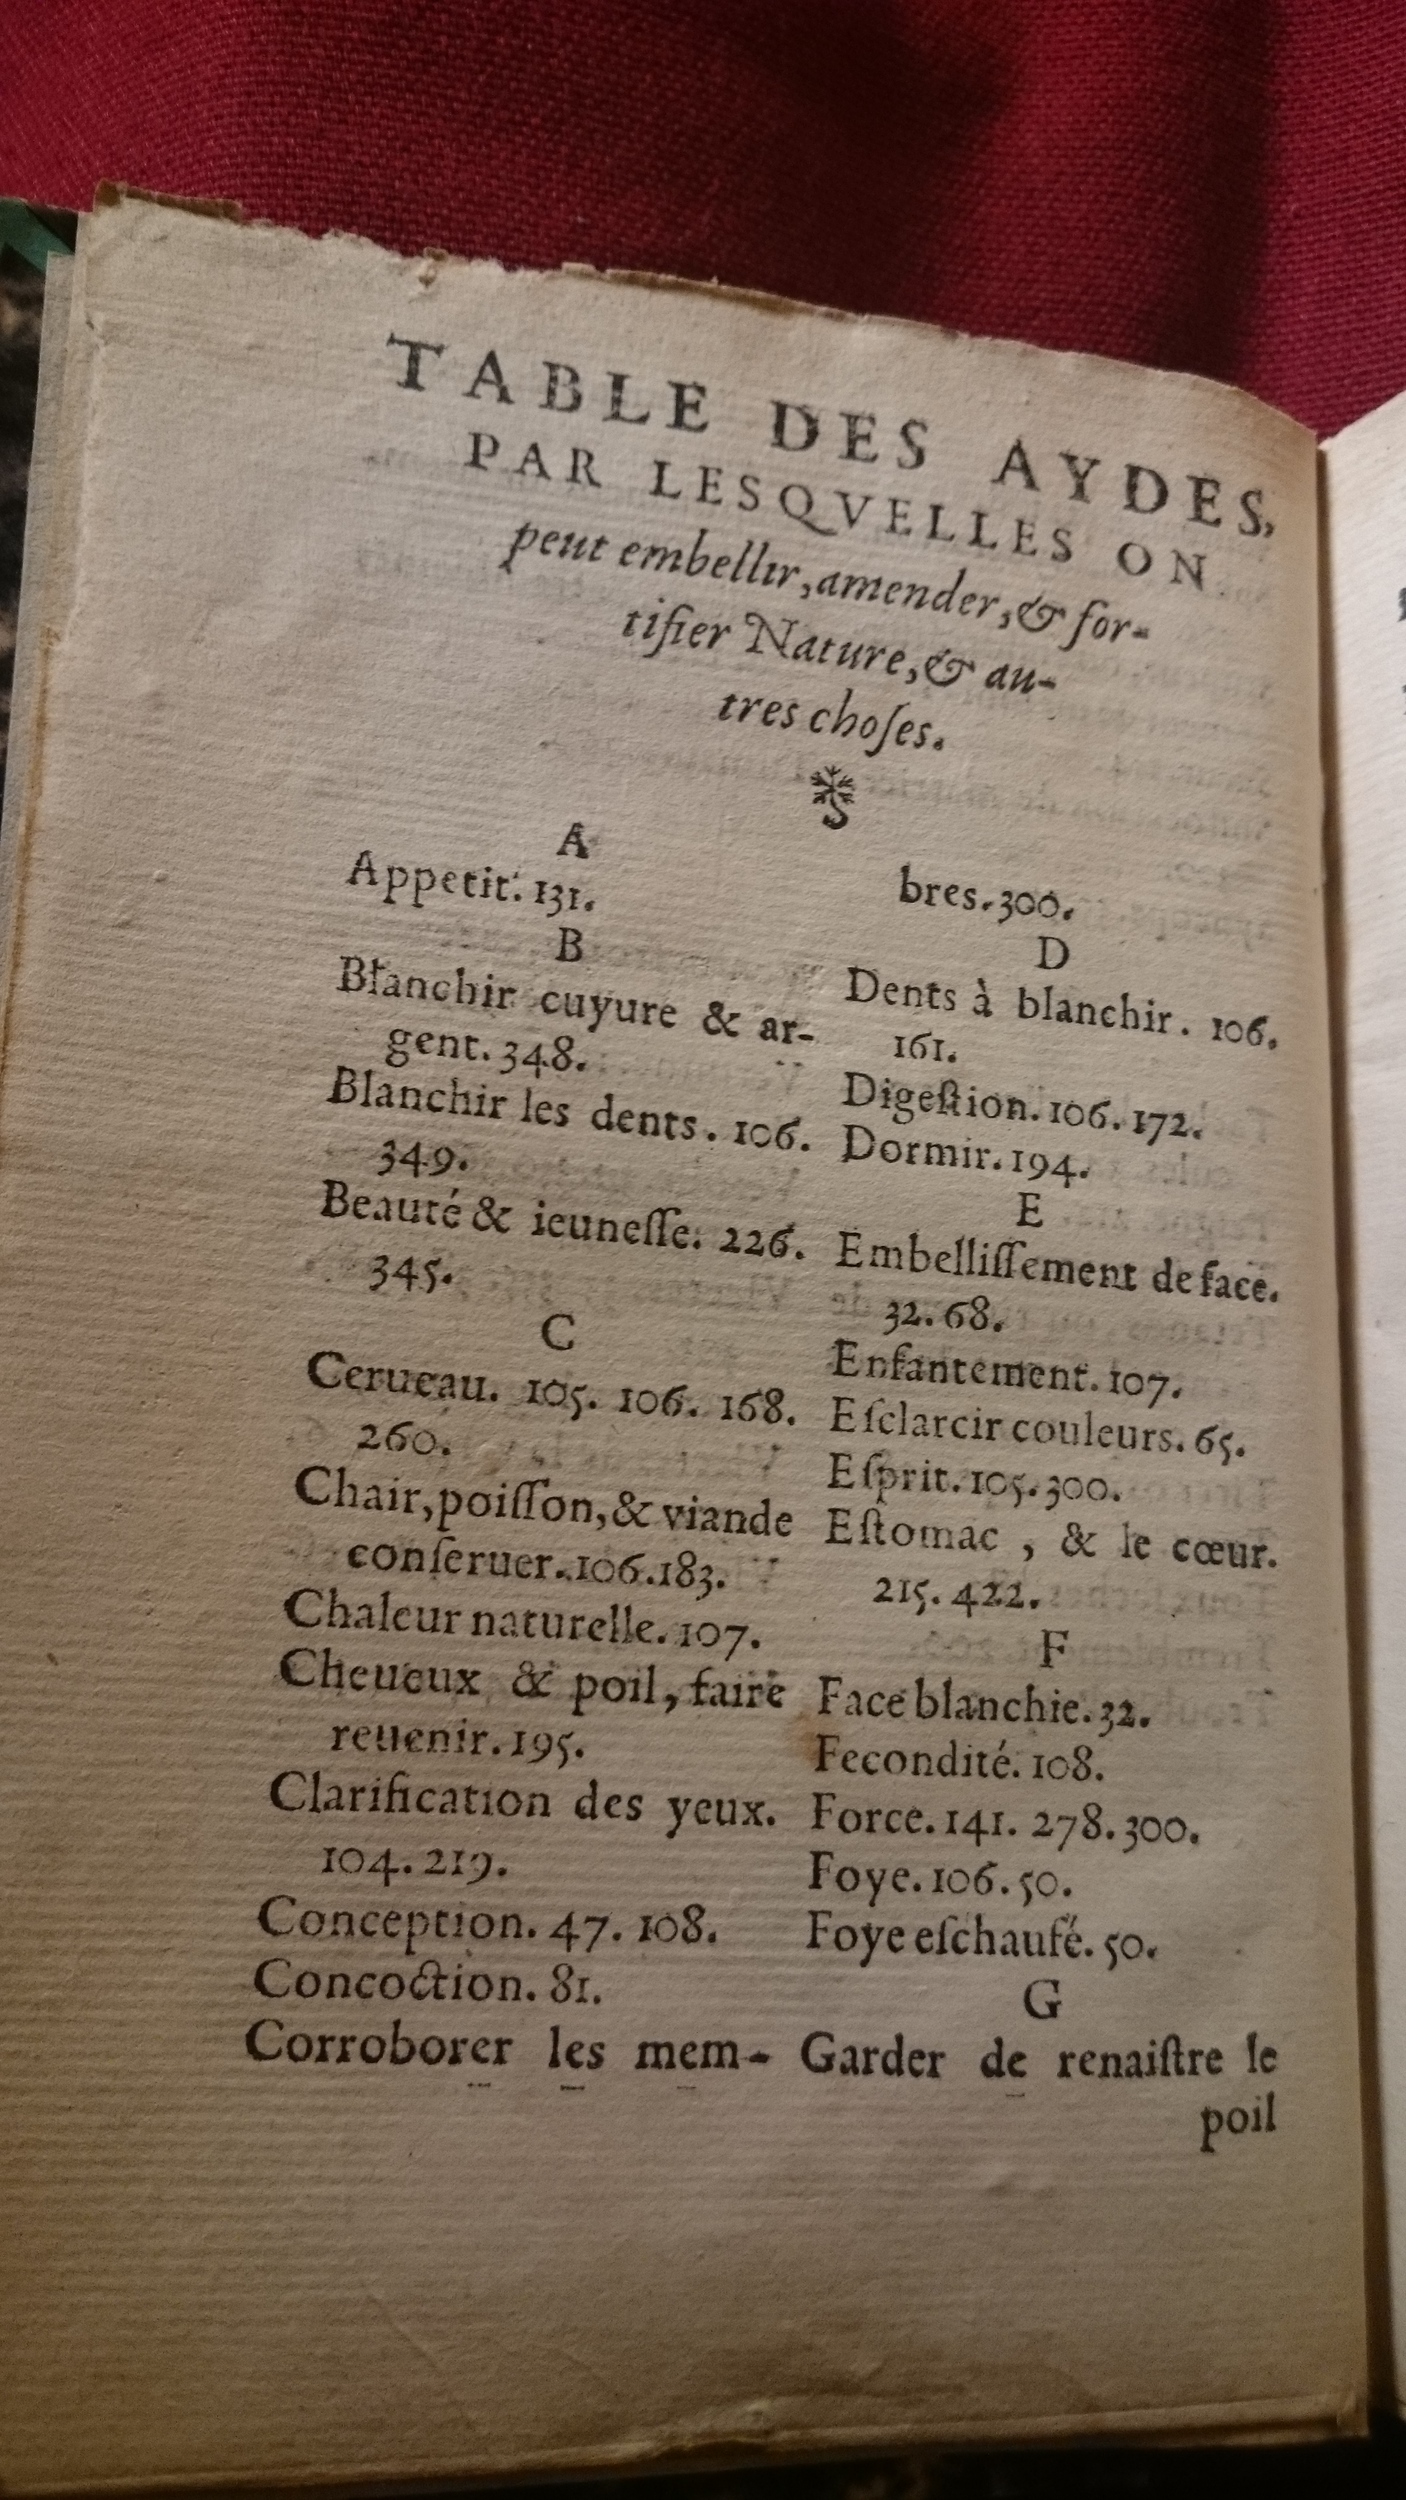 TABLE DES AYDES,
PAR LESQVELLES ON
peut embellir, amender, & for-
tifier Nature, & au-
tres choſes.
A
Appetit. 131.
B
Blanchir cuyure & ar-
gent. 348.
Blanchir les dents. 106.
349.
Beauté & ieuneſſe. 226.
345.
C
Cerueau. 105. 106. 168.
260.
Chair, poiſſon, & viande
conſeruer. 106. 183.
Chaleur naturelle. 107.
Cheueux & poil, faire
reuenir. 195.
Clarification des yeux.
104. 219.
Conception. 47. 108.
Concoction. 81.
Corroborer les mem-
bres. 300.
D
Dents à blanchir. 106.
161.
Digeſtion. 106. 172.
Dormir. 194.
E
Embelliſſement de face.
32. 68.
Enfantement. 107.
Eſclarcir couleurs. 65.
Eſprit. 105. 300.
Eſtomac , & le cœur.
215. 422.
F
Face blanchie. 32.
Fecondité. 108.
Force. 141. 278. 300.
Foye. 106. 50.
Foye eſchaufé. 50.
G
Garder de renaiſtre le
poil